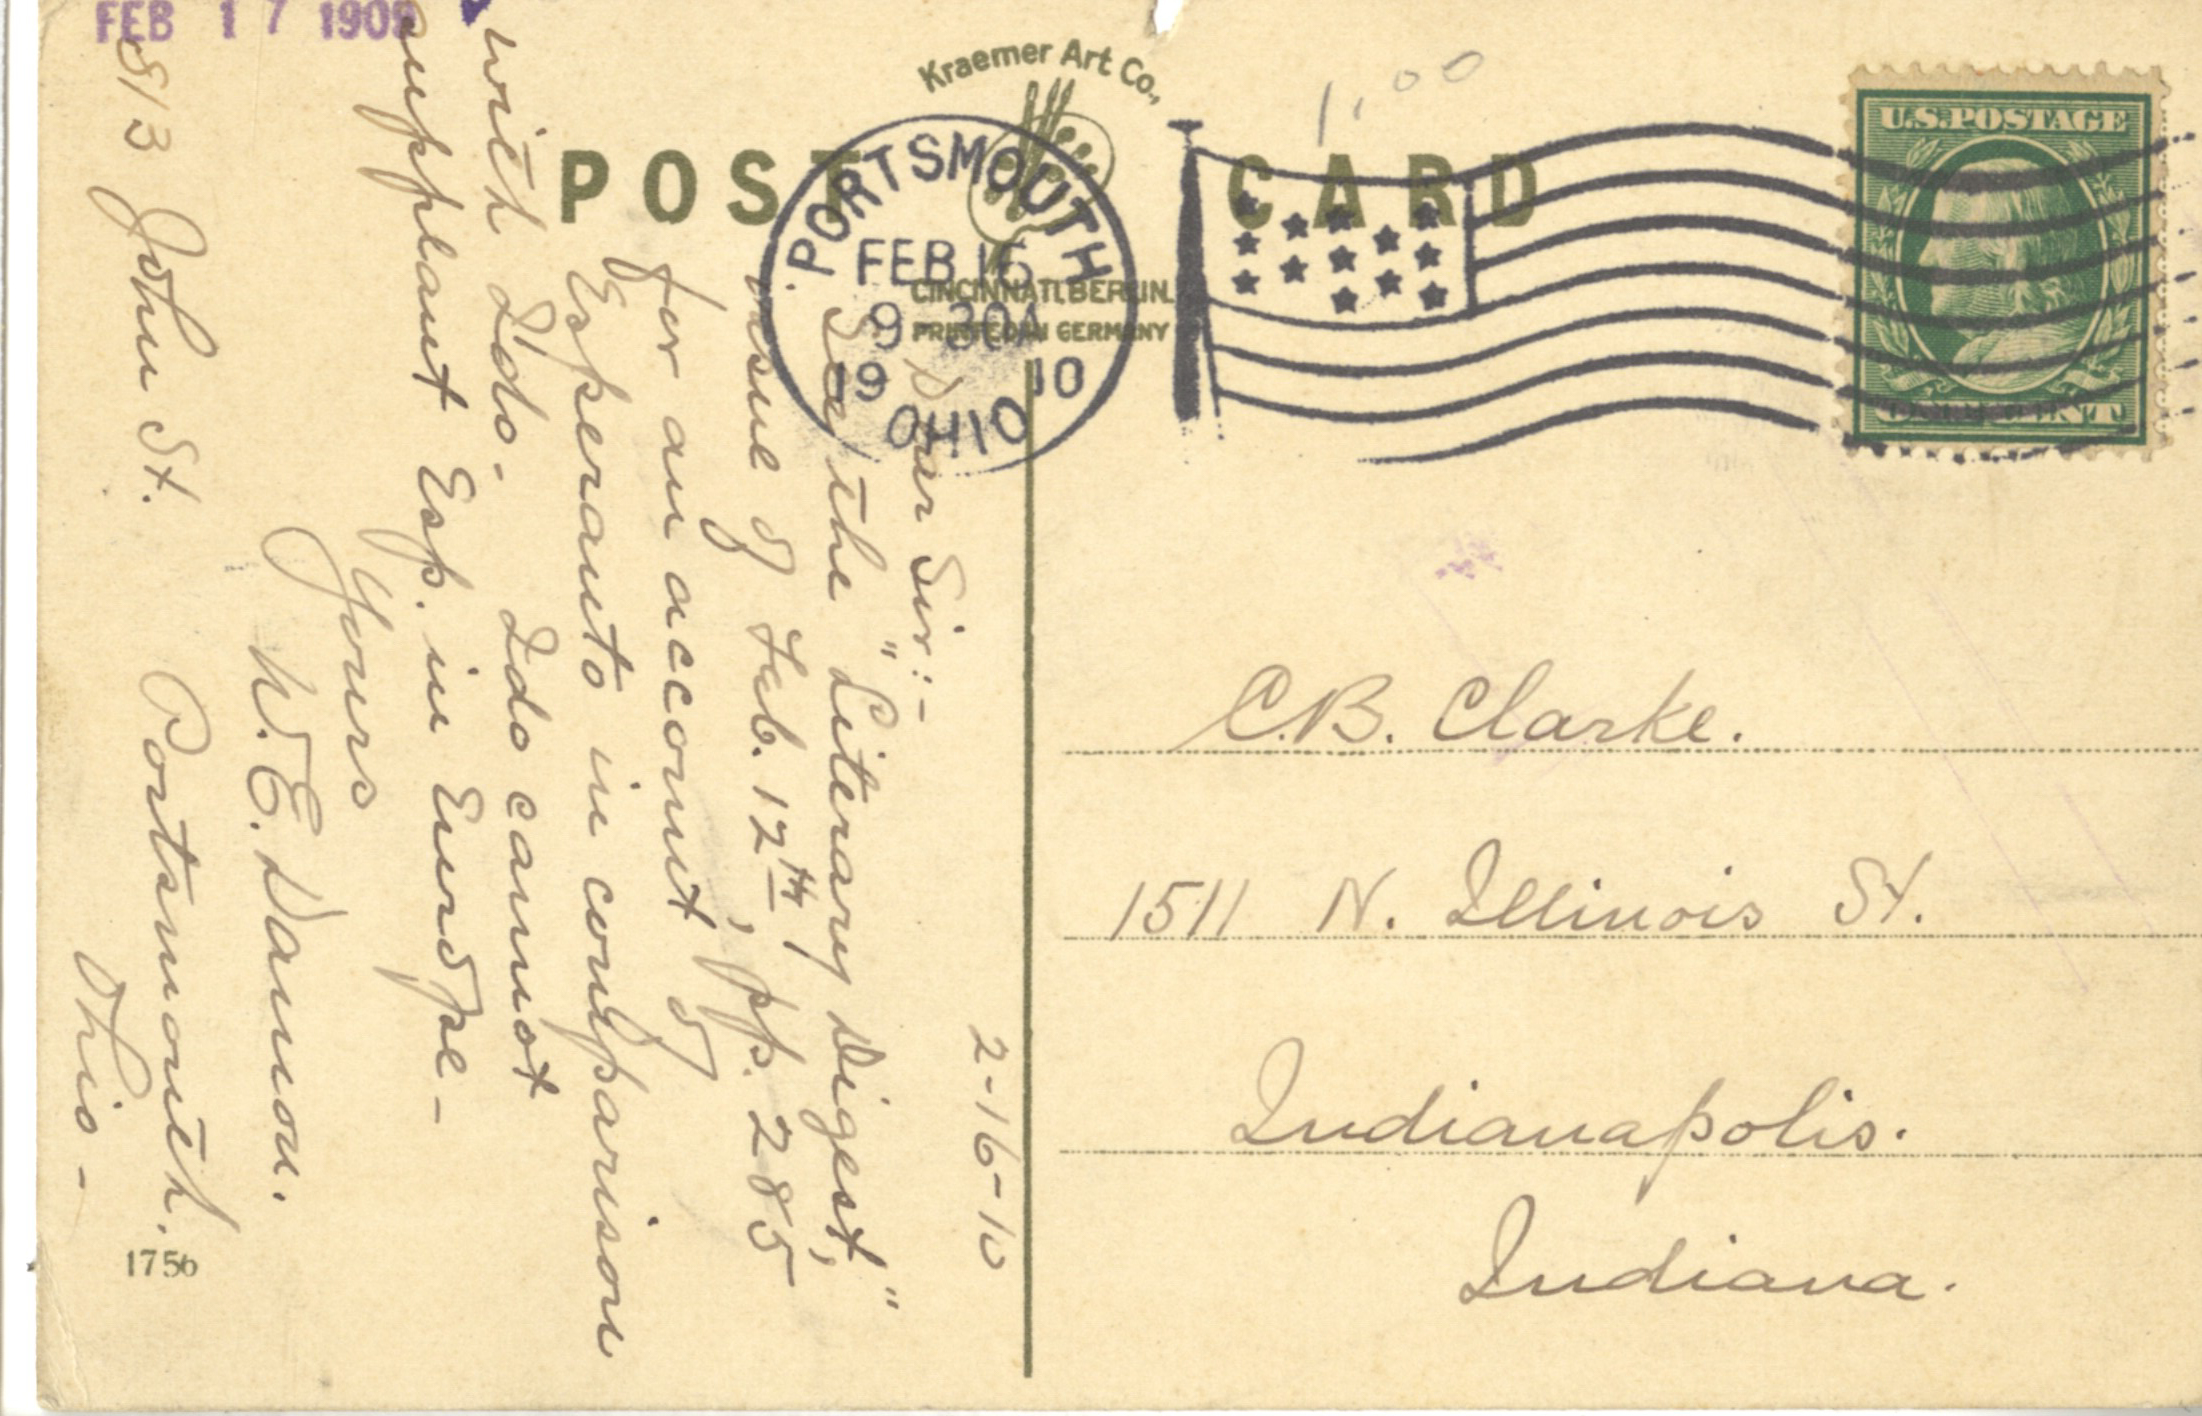 FEB 17 1909
Kraemer Art Co.,
POST CARD
CINCINNATI. BERLIN.
PRINTED IN GERMANY
PORTSMOUTH
FEB 16
9 30A
19 10
OHIO
1.00
U.S. POSTAGE
ONE CENT
2-16-10
Dear Sir:-
See the "Literary Digest,"
issue of Feb. 12th, pp. 285
for an account of
Esperanto in comparison
with Ido. - Ido cannot
supplant Esp. in Europe -
Yours
W. E. Damon.
813 John St. Portsmouth.
Ohio -
C.B. Clarke.
1511 N. Illinois St.
Indianapolis.
Indiana.
1756